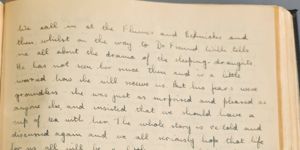 We call in at the and
then, whilst on the way to Dr Freund, tells
me all about the drama of the sleeping-draughts
He has not seen her since then and is a little
worried how she will receive us. But his fears were
groundless she was just as surprised and pleased as
anyone else, and insisted that we should have a
cup of tea with her. The whole story is re-told and
discussed again and we all seriously hope that life
for us all will be a